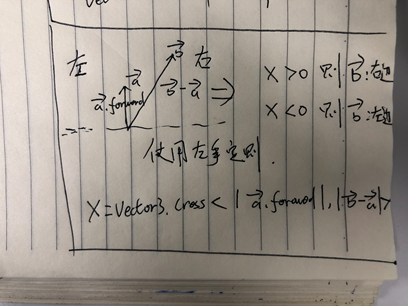 左 b 右
a
a.forward b-a ⇒
X>0 则 b:右边
X<0 则 b:左边
使用左手定则.
X=Vector3.Cross<|a.forward|,|b-a|>